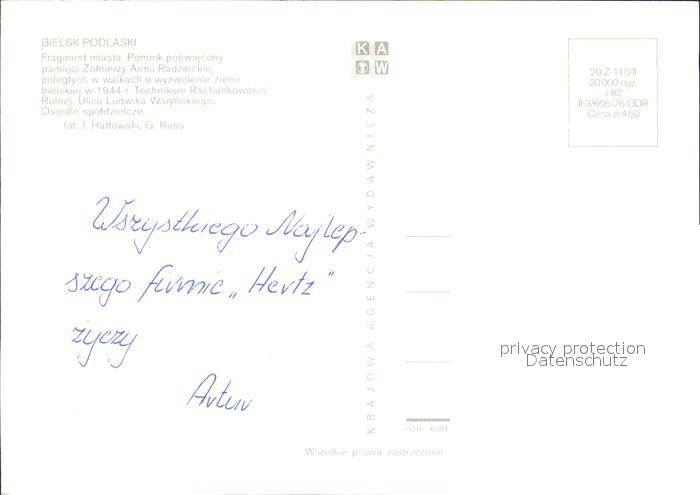 BIELSK PODLASKI
Fragment miasta. Pomnik poświęcony
pamięci Żołnierzy Armii Radzieckiej
poległych w walkach o wyzwolenie ziemi
bielskiej w 1944 r. Technikum Rachunkowości
Rolnej. Ulica Ludwika Waryńskiego.
Osiedle spółdzielcze.
fot. J. Hattowski, G. Russ
K A
W
KRAJOWA AGENCJA WYDAWNICZA
20-Z-110/II
20 000 egz.
J-82
II-3/606/76/DDR
Cena zł 4,50
Wszystkiego Najlep-
szego firmie „Hertz"
życzy
Artur
privacy protection
Datenschutz
ozn. kod
Wszelkie prawa zastrzeżone